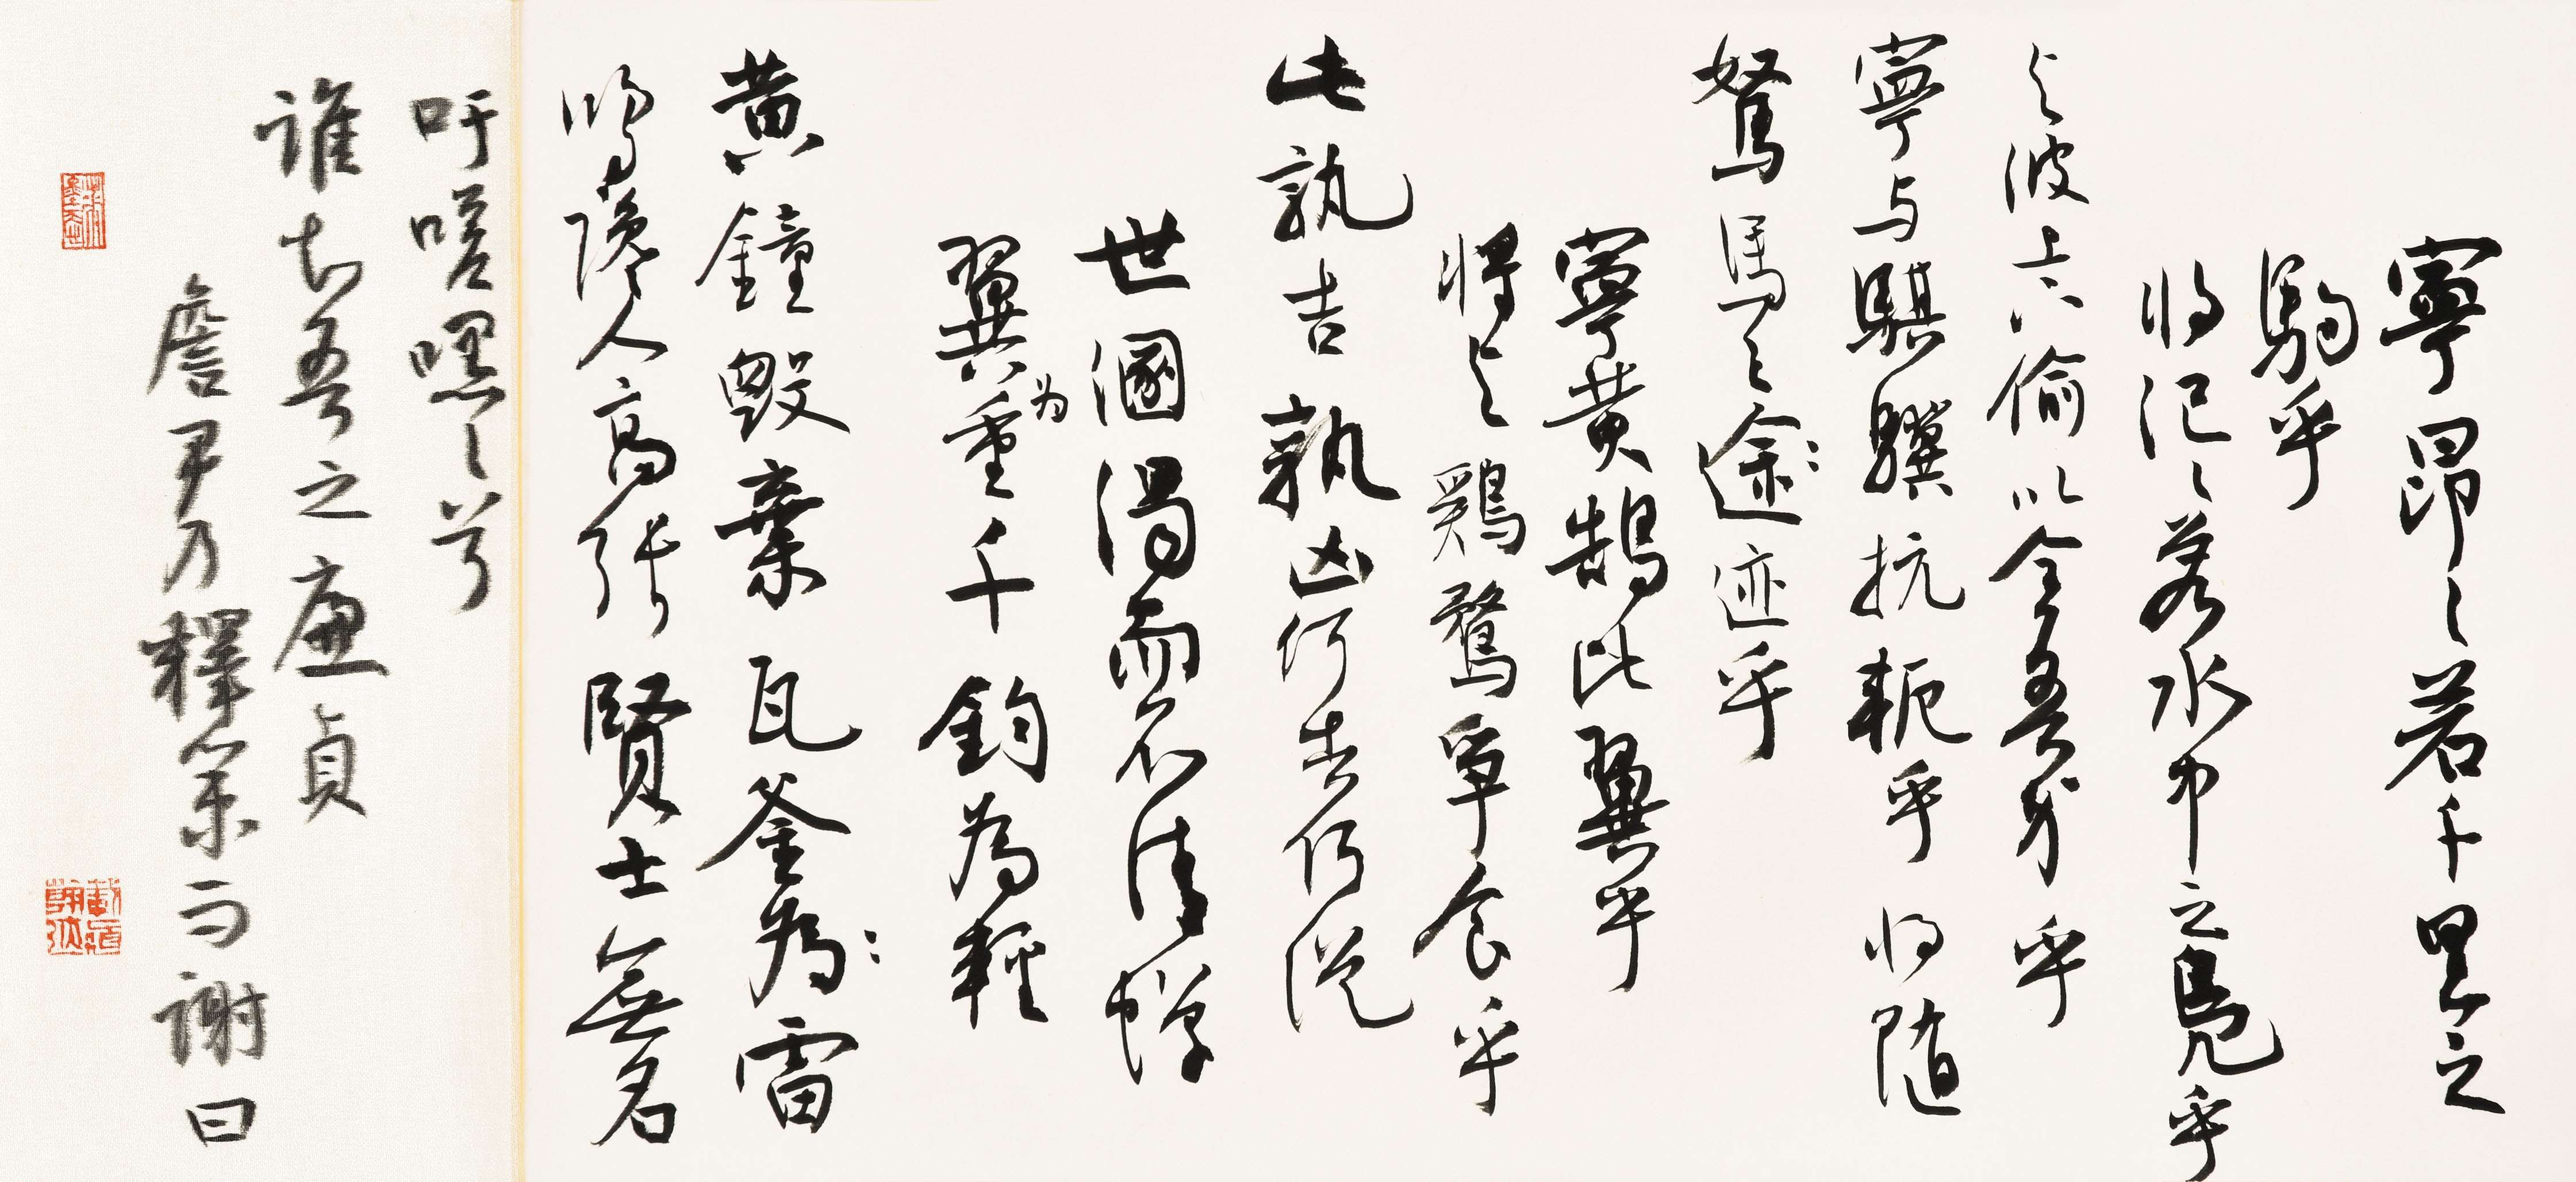 寧昂々若千里之
駒乎
将氾々若水中之鳧乎
与波上下偷以全吾身乎
寧与騏驥抗軛乎将随
駑馬之途迹乎
寧黄鵠比翼乎
将与鶏鶩争食乎
此孰吉孰凶何去何從
世溷濁而不清蟬
翼为重千鈞為輕
黄鐘毀棄瓦釜為雷
鳴讒人高張賢士無名
吁嗟嘿々兮
誰知吾之廉貞
詹尹乃釋策而謝曰